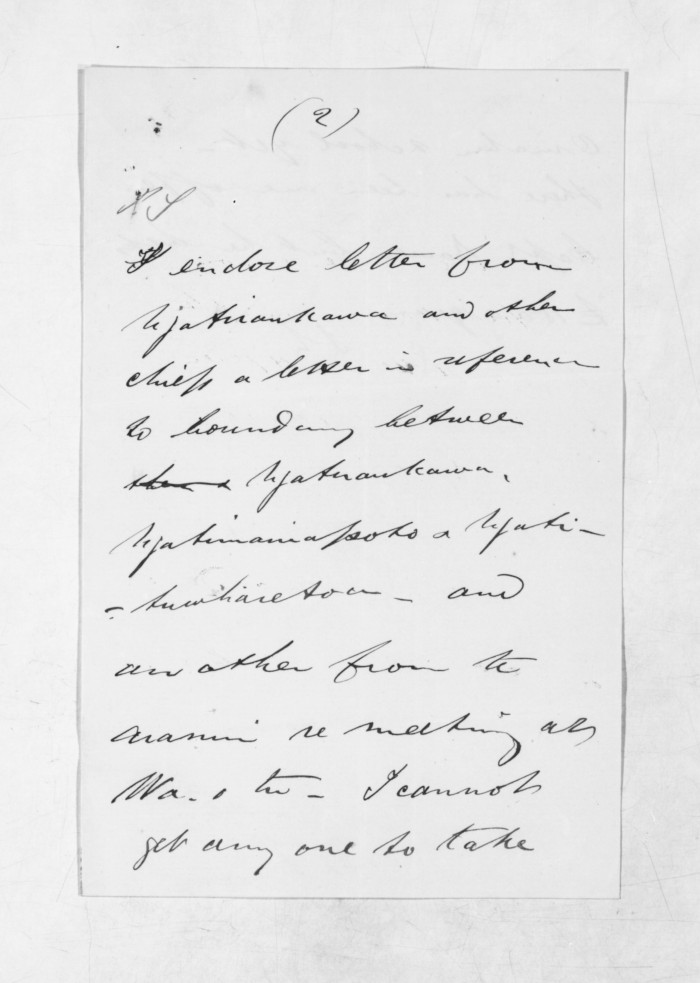 (2)
PS
I enclose letter from
Ngatiraukawa and other
chiefs a letter in reference
to boundary between
Ngatiraukawa,
Ngatimaniapoto & Ngati-
-tuwharetoa - and
an other from te
re meeting at
I cannot
get any one to take